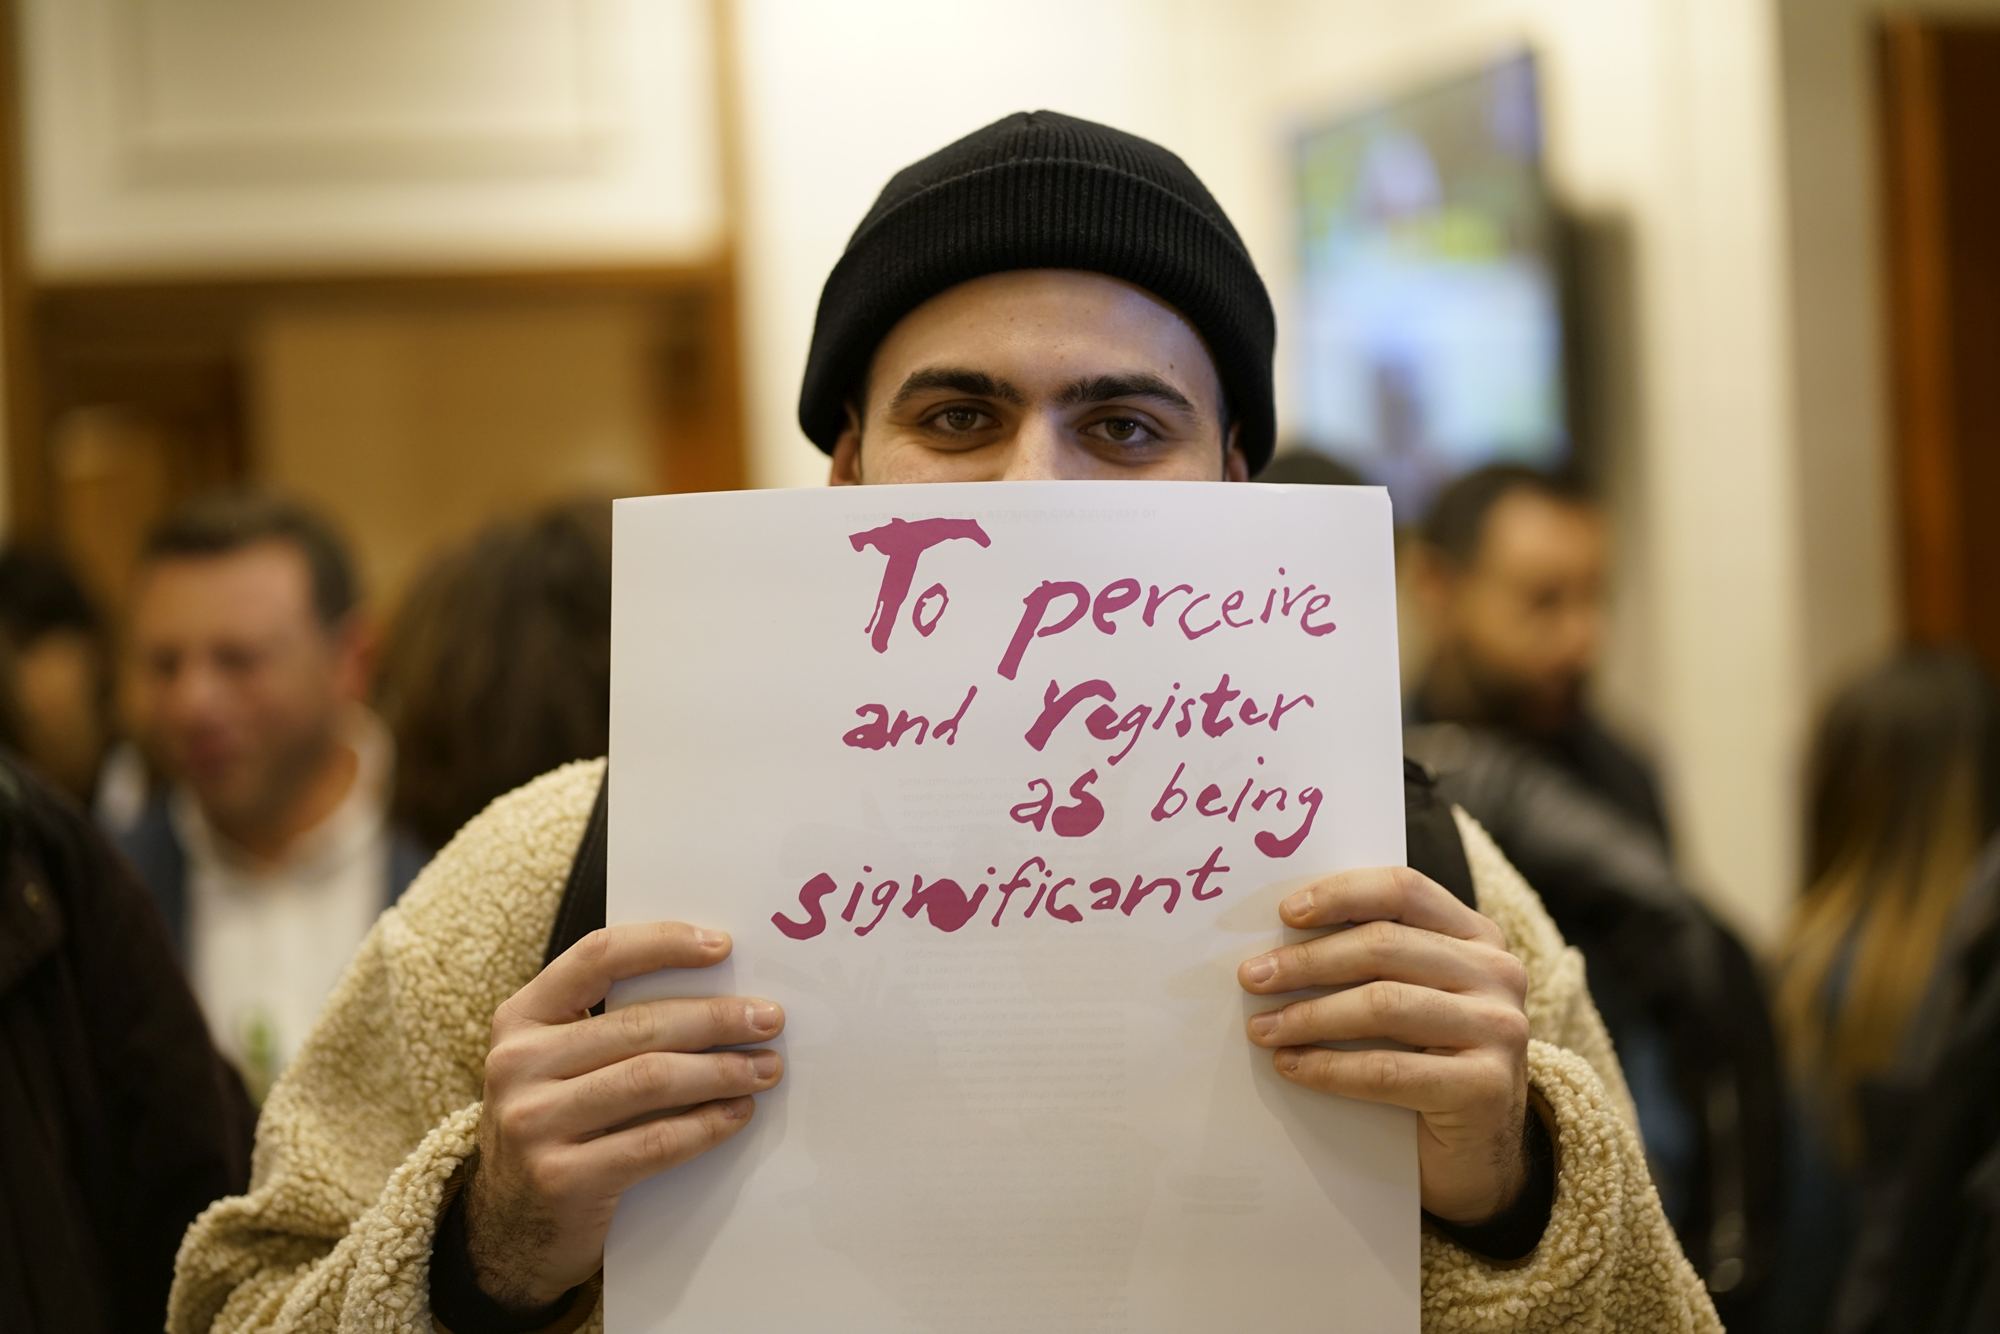 To perceive
and register
as being
significant